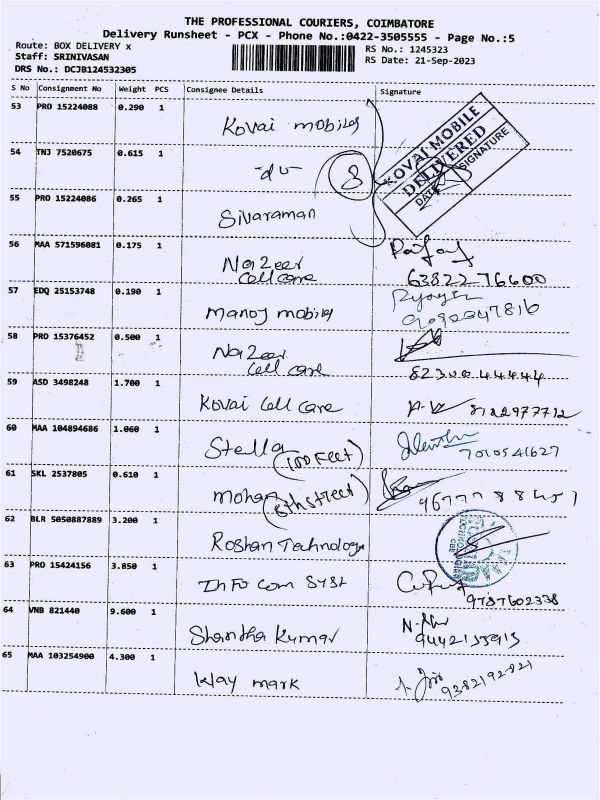 THE PROFESSIONAL COURIERS, COIMBATORE
Delivery Runsheet - PCX - Phone No.:0422-3505555 - Page No.:5
Route: BOX DELIVERY x
Staff: SRINIVASAN
DRS No.: DCJB124532305
RS No.: 1245323
RS Date: 21-Sep-2023
S No Consignment No Weight PCS Consignee Details Signature
53 PRO 15224088 0.290 1
Kovai mobiles
54 TNJ 7520675 0.615 1
-do- 8
KOVAI MOBILE
DELIVERED
DATE SIGNATURE
55 PRO 15224086 0.265 1
Sivaraman
56 MAA 571596081 0.175 1
Nazeer
cell care 6382276600
57 EDQ 25153748 0.190 1
Manoj mobiles
58 PRO 15376452 0.500 1
Nazeer
cell care
59 ASD 3498248 1.700 1
Kovai Cell Care 8122977712
60 MAA 104894686 1.060 1
Stella (100 Feet) 7010541627
61 SKL 2537805 0.610 1
mohan (6th street)
62 BLR 5050887889 3.200 1
Roshan Technology
63 PRO 15424156 3.850 1
Info Com Syst
9787602338
64 VNB 821440 9.600 1
Shantha Kumar
65 MAA 103254900 4.300 1
Way mark 9382192821